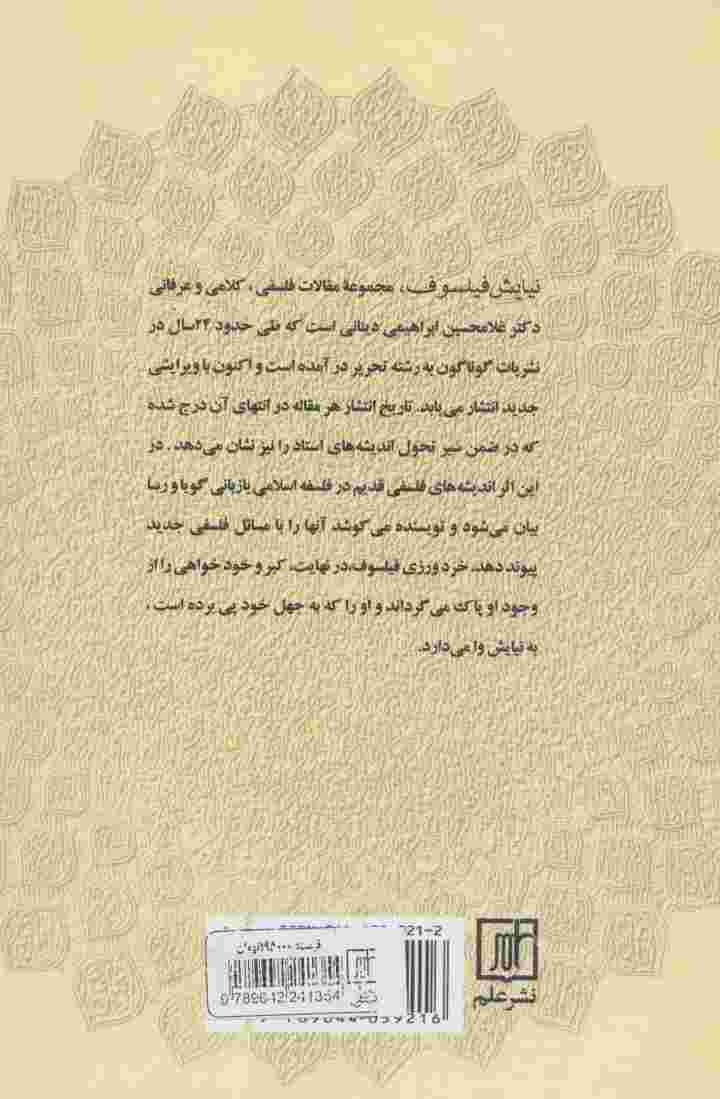 نیایش فیلسوف، مجموعهٔ مقالات فلسفی، کلامی و عرفانی
دکتر غلامحسین ابراهیمی دینانی است که طی حدود ۲۴سال در
نشریات گوناگون به رشته تحریر در آمده است و اکنون با ویرایشی
جدید انتشار می‌یابد. تاریخ انتشار هر مقاله در انتهای آن درج شده
که در ضمن سیر تحول اندیشه‌های استاد را نیز نشان می‌دهد. در
این اثر اندیشه‌های فلسفی قدیم در فلسفه اسلامی با زبانی گویا و رسا
بیان می‌شود و نویسنده می‌کوشد آنها را با مسائل فلسفی جدید
پیوند دهد. خرد ورزی فیلسوف، در نهایت، کبر و خود خواهی را از
وجود او پاک می‌گرداند و او را که به جهل خود پی برده است،
به نیایش وا می‌دارد.
21-2
9 789642 241354
059216
نشر علم